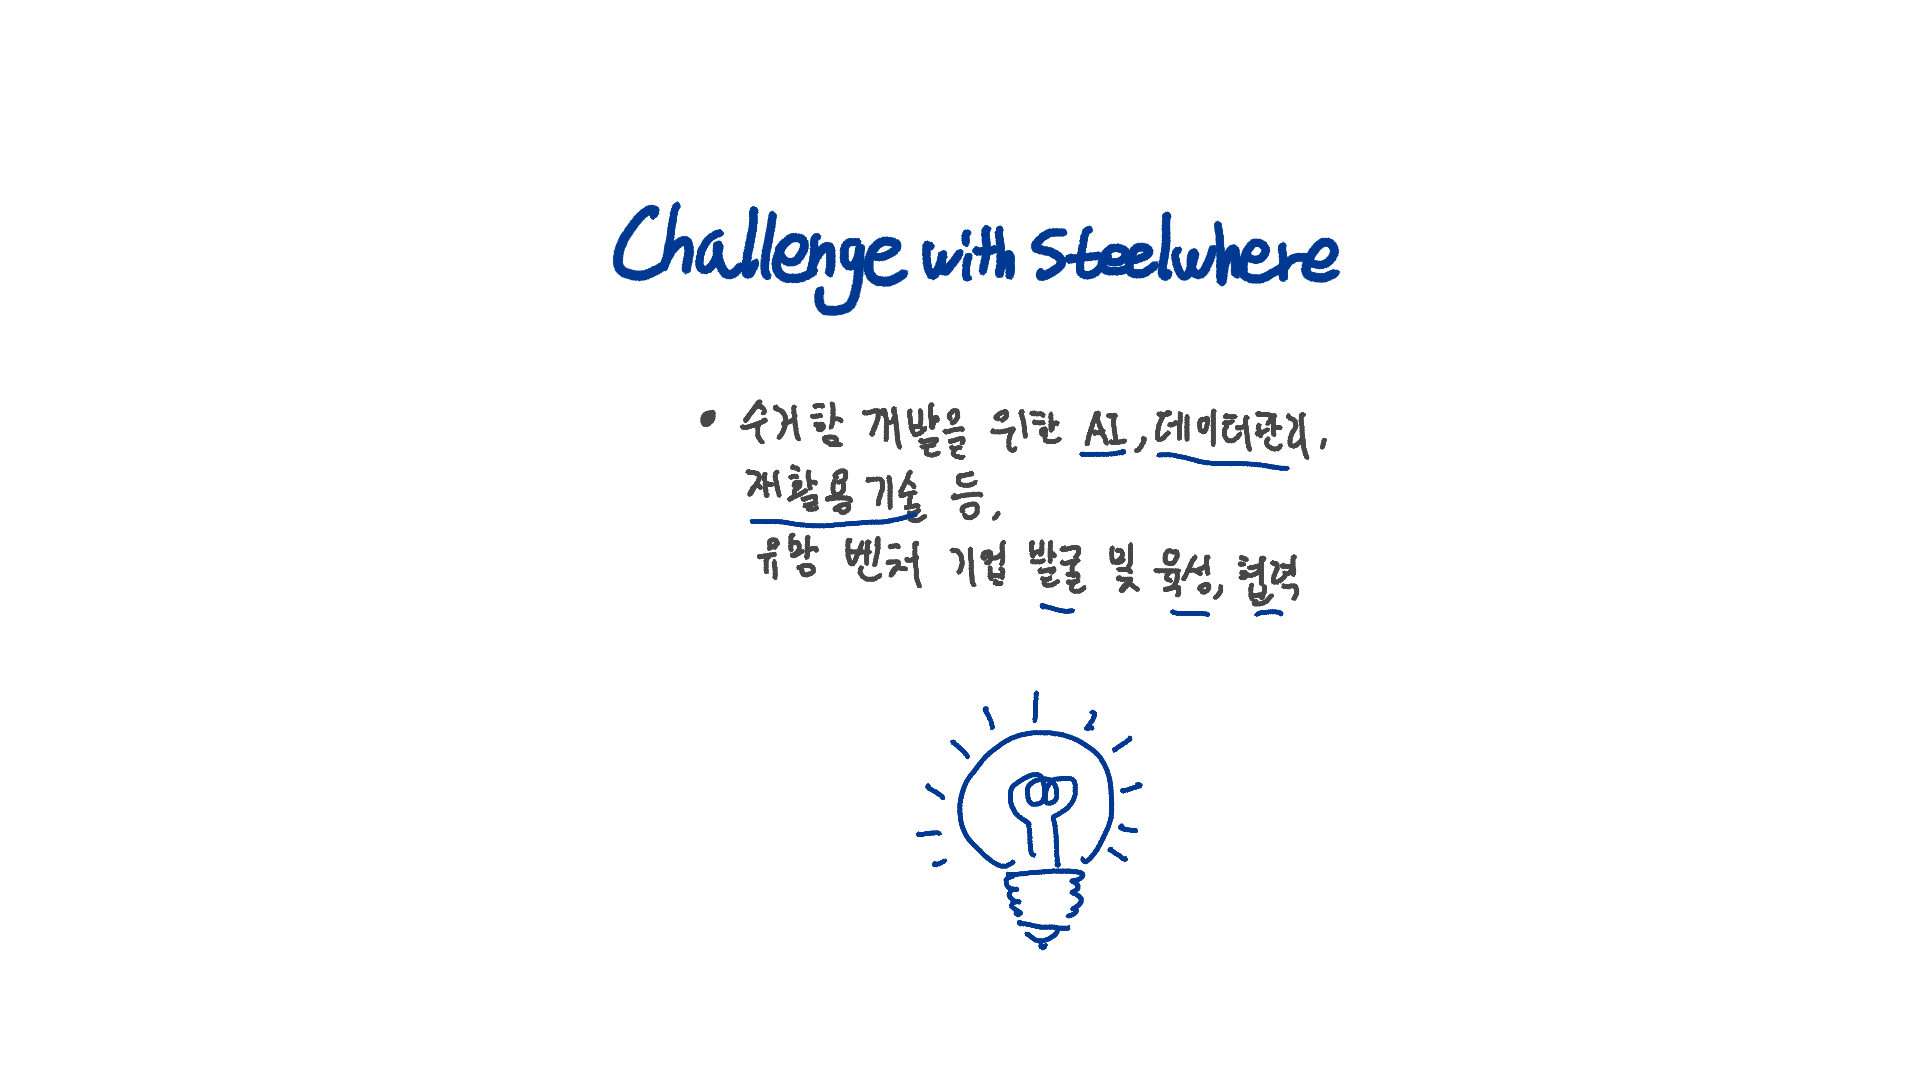 Challenge with Steelwhere
• 수거함 개발을 위한 AI, 데이터관리,
재활용기술 등,
유망 벤처 기업 발굴 및 육성, 협력